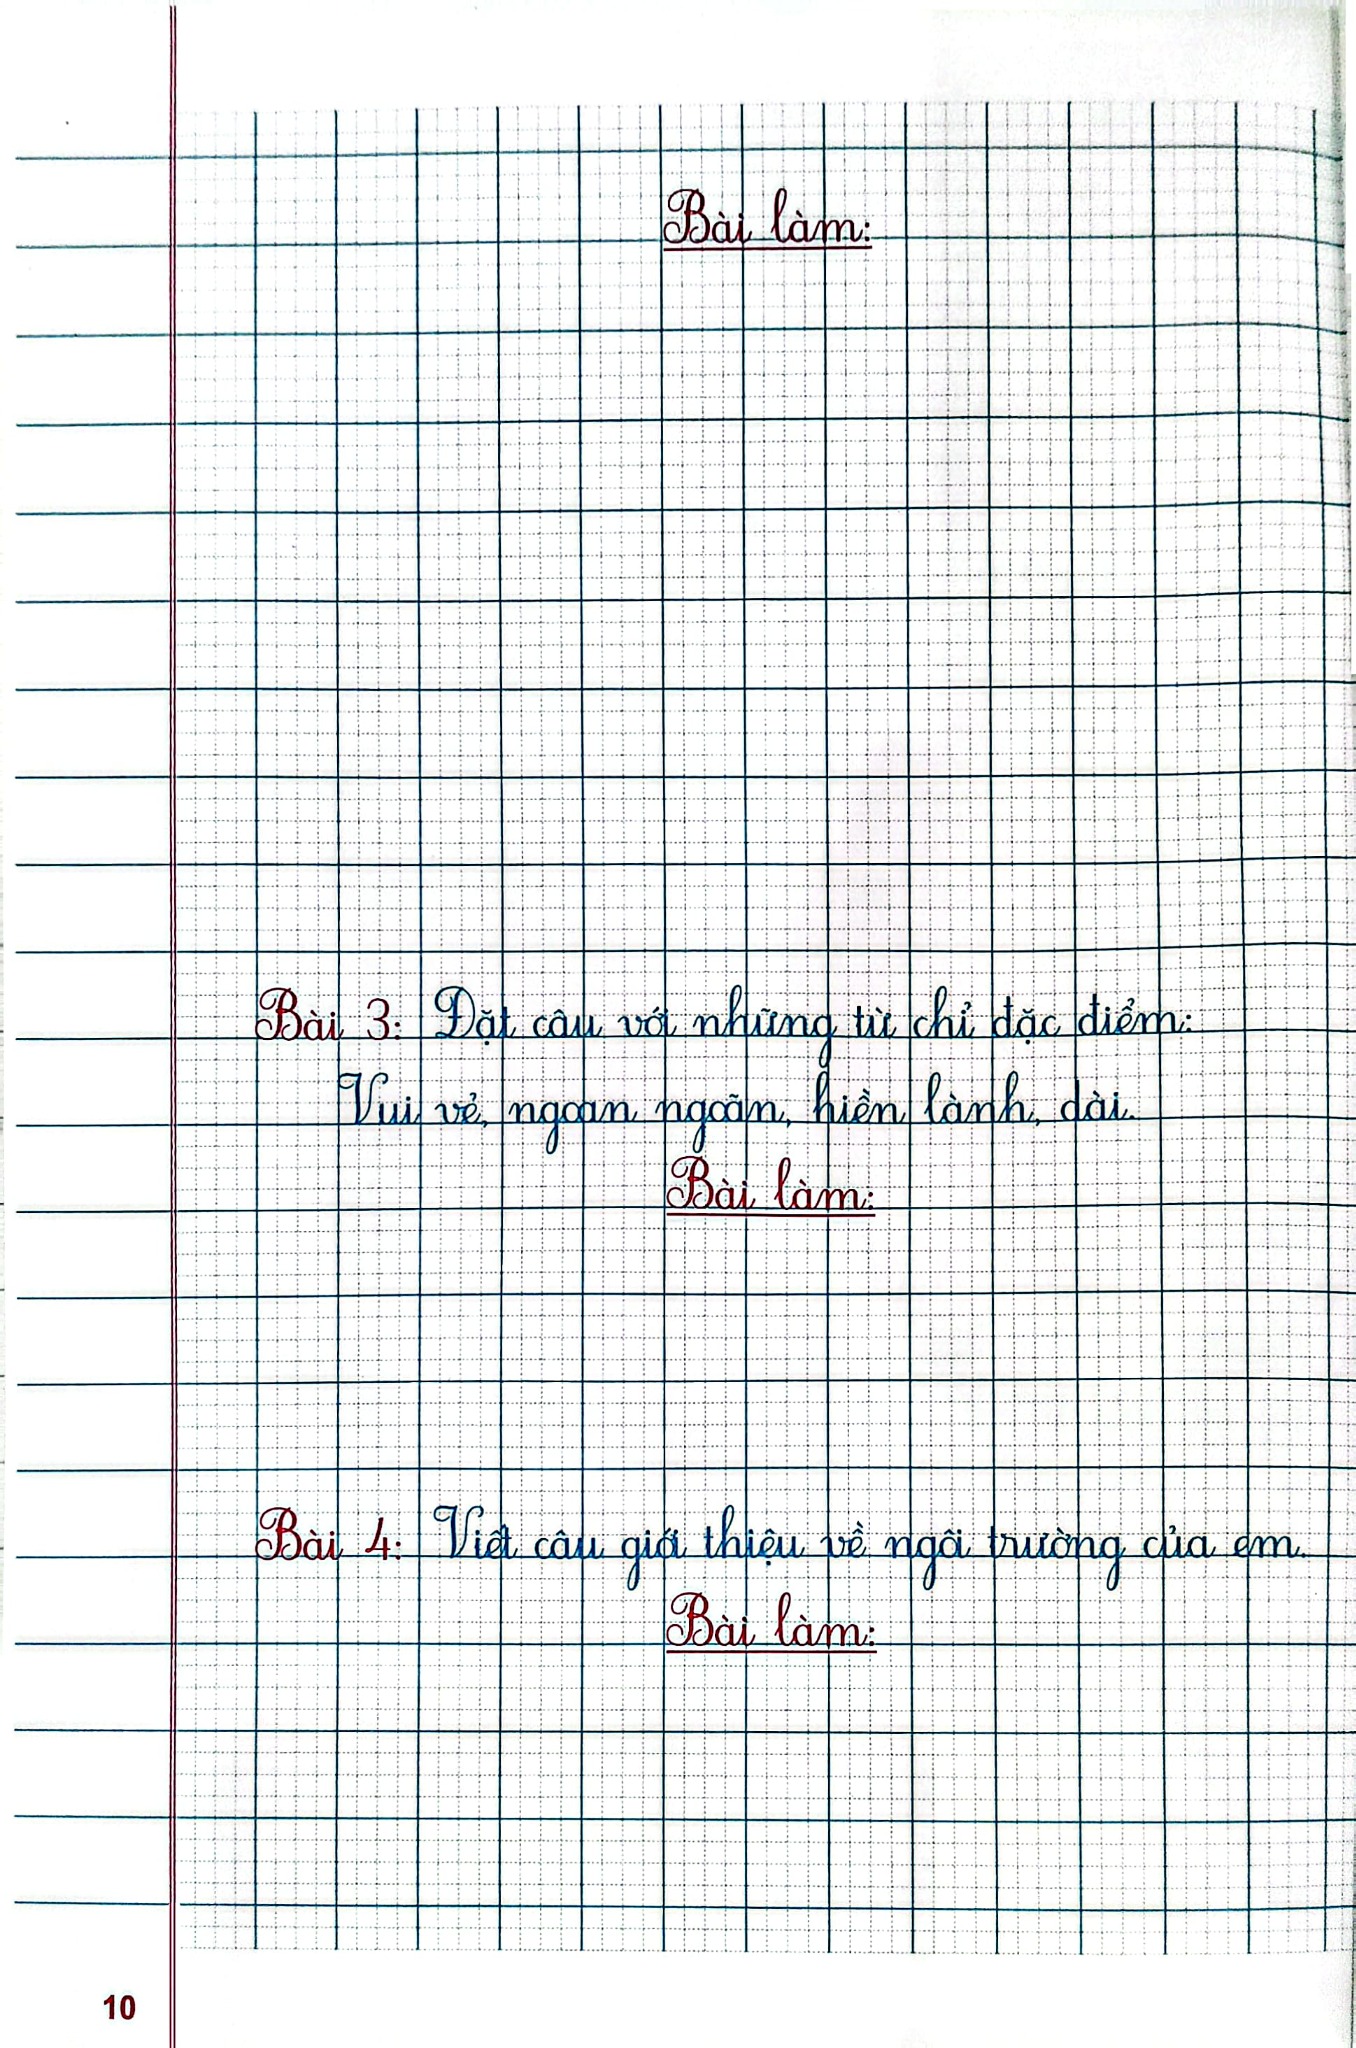 Bài làm:
Bài 3: Đặt câu với những từ chỉ đặc điểm:
Vui vẻ, ngoan ngoãn, hiền lành, dài.
Bài làm:
Bài 4: Viết câu giới thiệu về ngôi trường của em.
Bài làm:
10